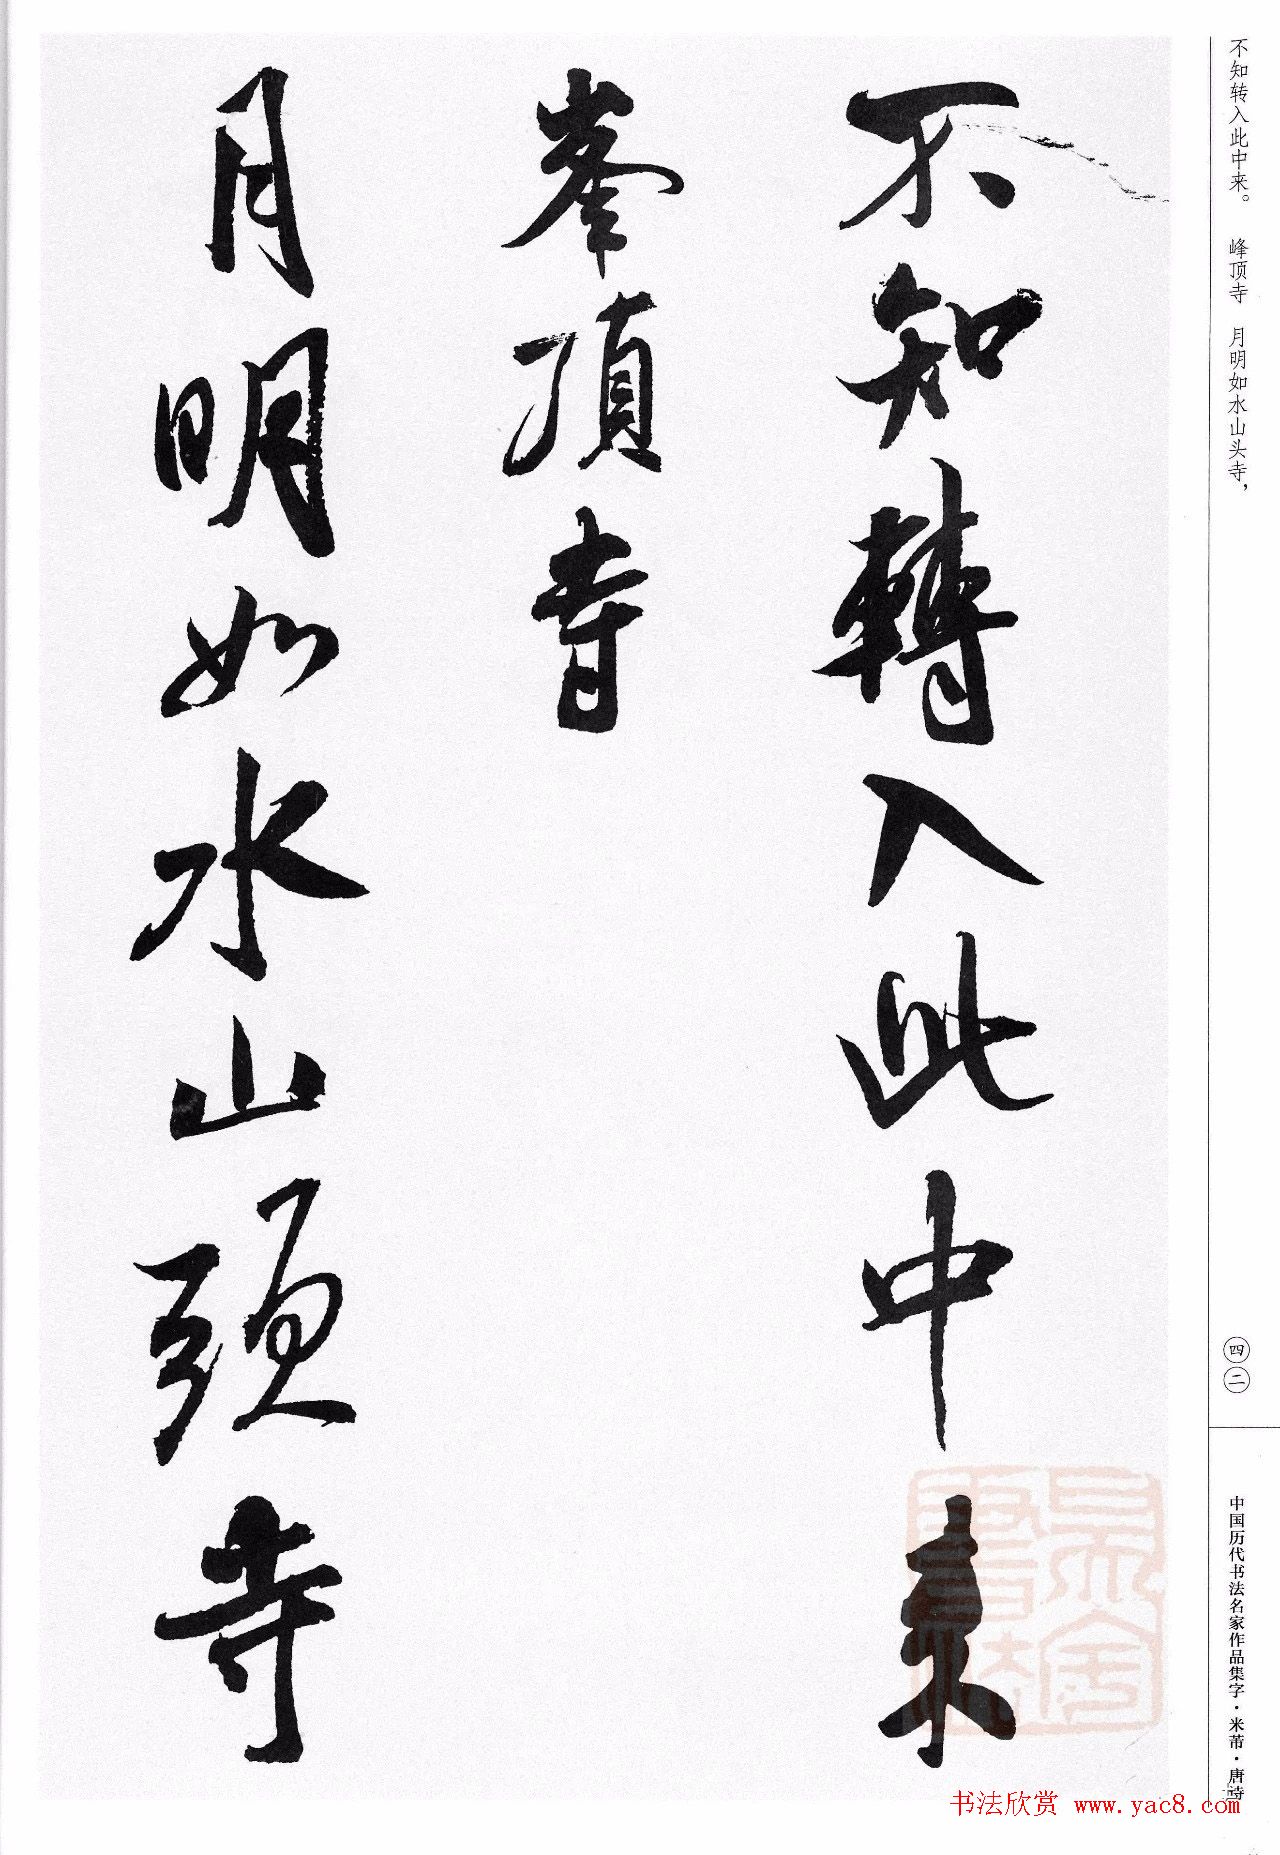 不知转入此中来。 峰顶寺 月明如水山头寺，
不知轉入此中来
峯頂寺
月明如水山頭寺
四二
中国历代书法名家作品集字·米芾·唐诗
书法欣赏 www.yac8.com